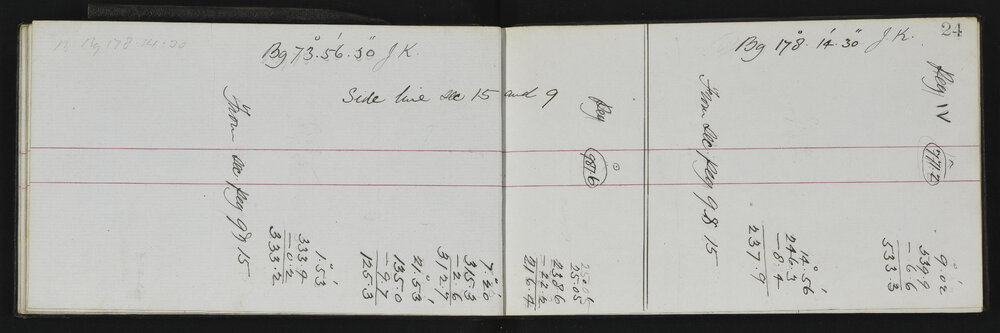 Bg 178.14.30
Bg 73°.56'.30" J K.
Side line Sec 15 and 9
From Sec Peg 9 & 15
1°.53'
333.9
-0.2
333.2
21°.53'
135.0
-9.7
125.3
7°.20'
315.3
-2.6
312.7
25.05
238.6
-22.2
216.4
Peg
987.6
24
Bg 178°.14'.30" J K.
From Sec Peg 9 & 15
14°.56'
246.3
-8.4
237.9
Peg IV
777.2
9°.02'
539.9
-6.6
533.3